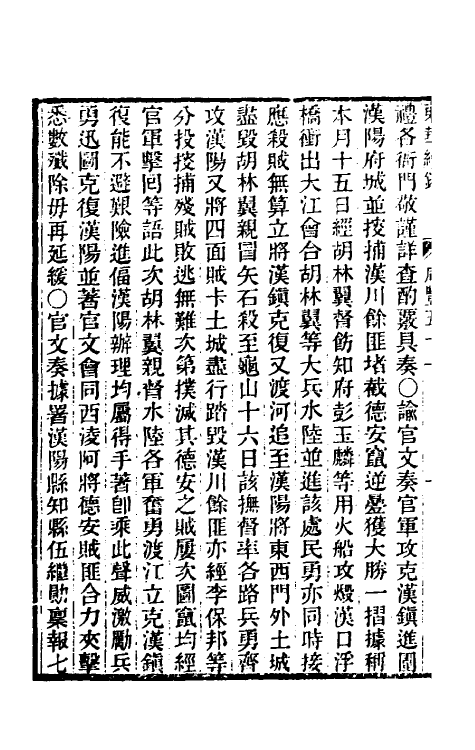 禮各衙門敬謹詳查酌覈具奏○諭官文奏官軍攻克漢鎮進圍
漢陽府城並搜捕漢川餘匪堵截德安竄逆疊獲大勝一摺據稱
本月十五日經胡林翼督飭知府彭玉麟等用火船攻燬漢口浮
橋衝出大江會台胡林翼等大兵水陸並進該處民勇亦同時接
應殺賊無算立將漢鎮克復又渡河追至漢陽將東西門外土城
盡毀胡林翼親冒矢石殺至龜山十六日該撫督率各路兵勇齊
攻漢陽又將四面賊卡土城盡行踏毀漢川餘匪亦經李保邦等
分投搜捕殘賊敗逃無難次第撲滅其德安之賊屢次圖竄均經
官軍擊回等語此次胡林翼親督水陸各軍奮勇渡江立克漢鎮
復能不避艱險進偪漢陽辦理均屬得手著卽乘此聲威激勵兵
勇迅圖克復漢陽並著官文會同西淩阿將德安賊匪合力夾擊
悉數殲除毋再延緩○官文奏據署漢陽縣知縣伍繼勛稟報七